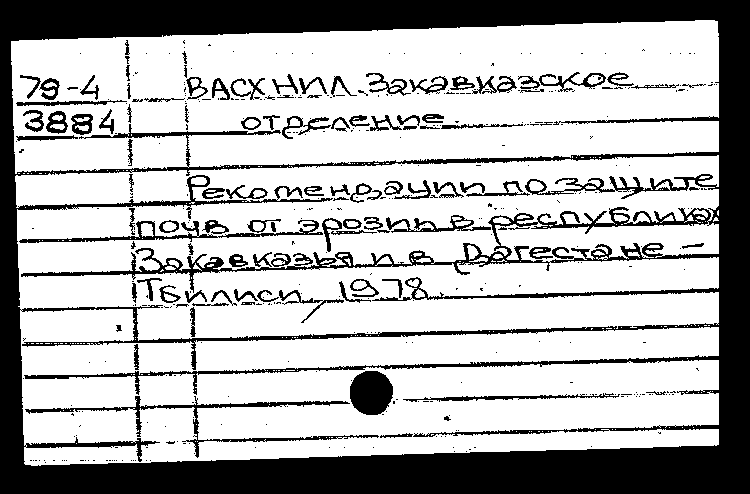 79-4 ВАСХНИЛ. Закавказское
3884 отделение.
Рекомендации по защите
почв от эрозии в республиках
Закавказья и в Дагестане –
Тбилиси, 1978